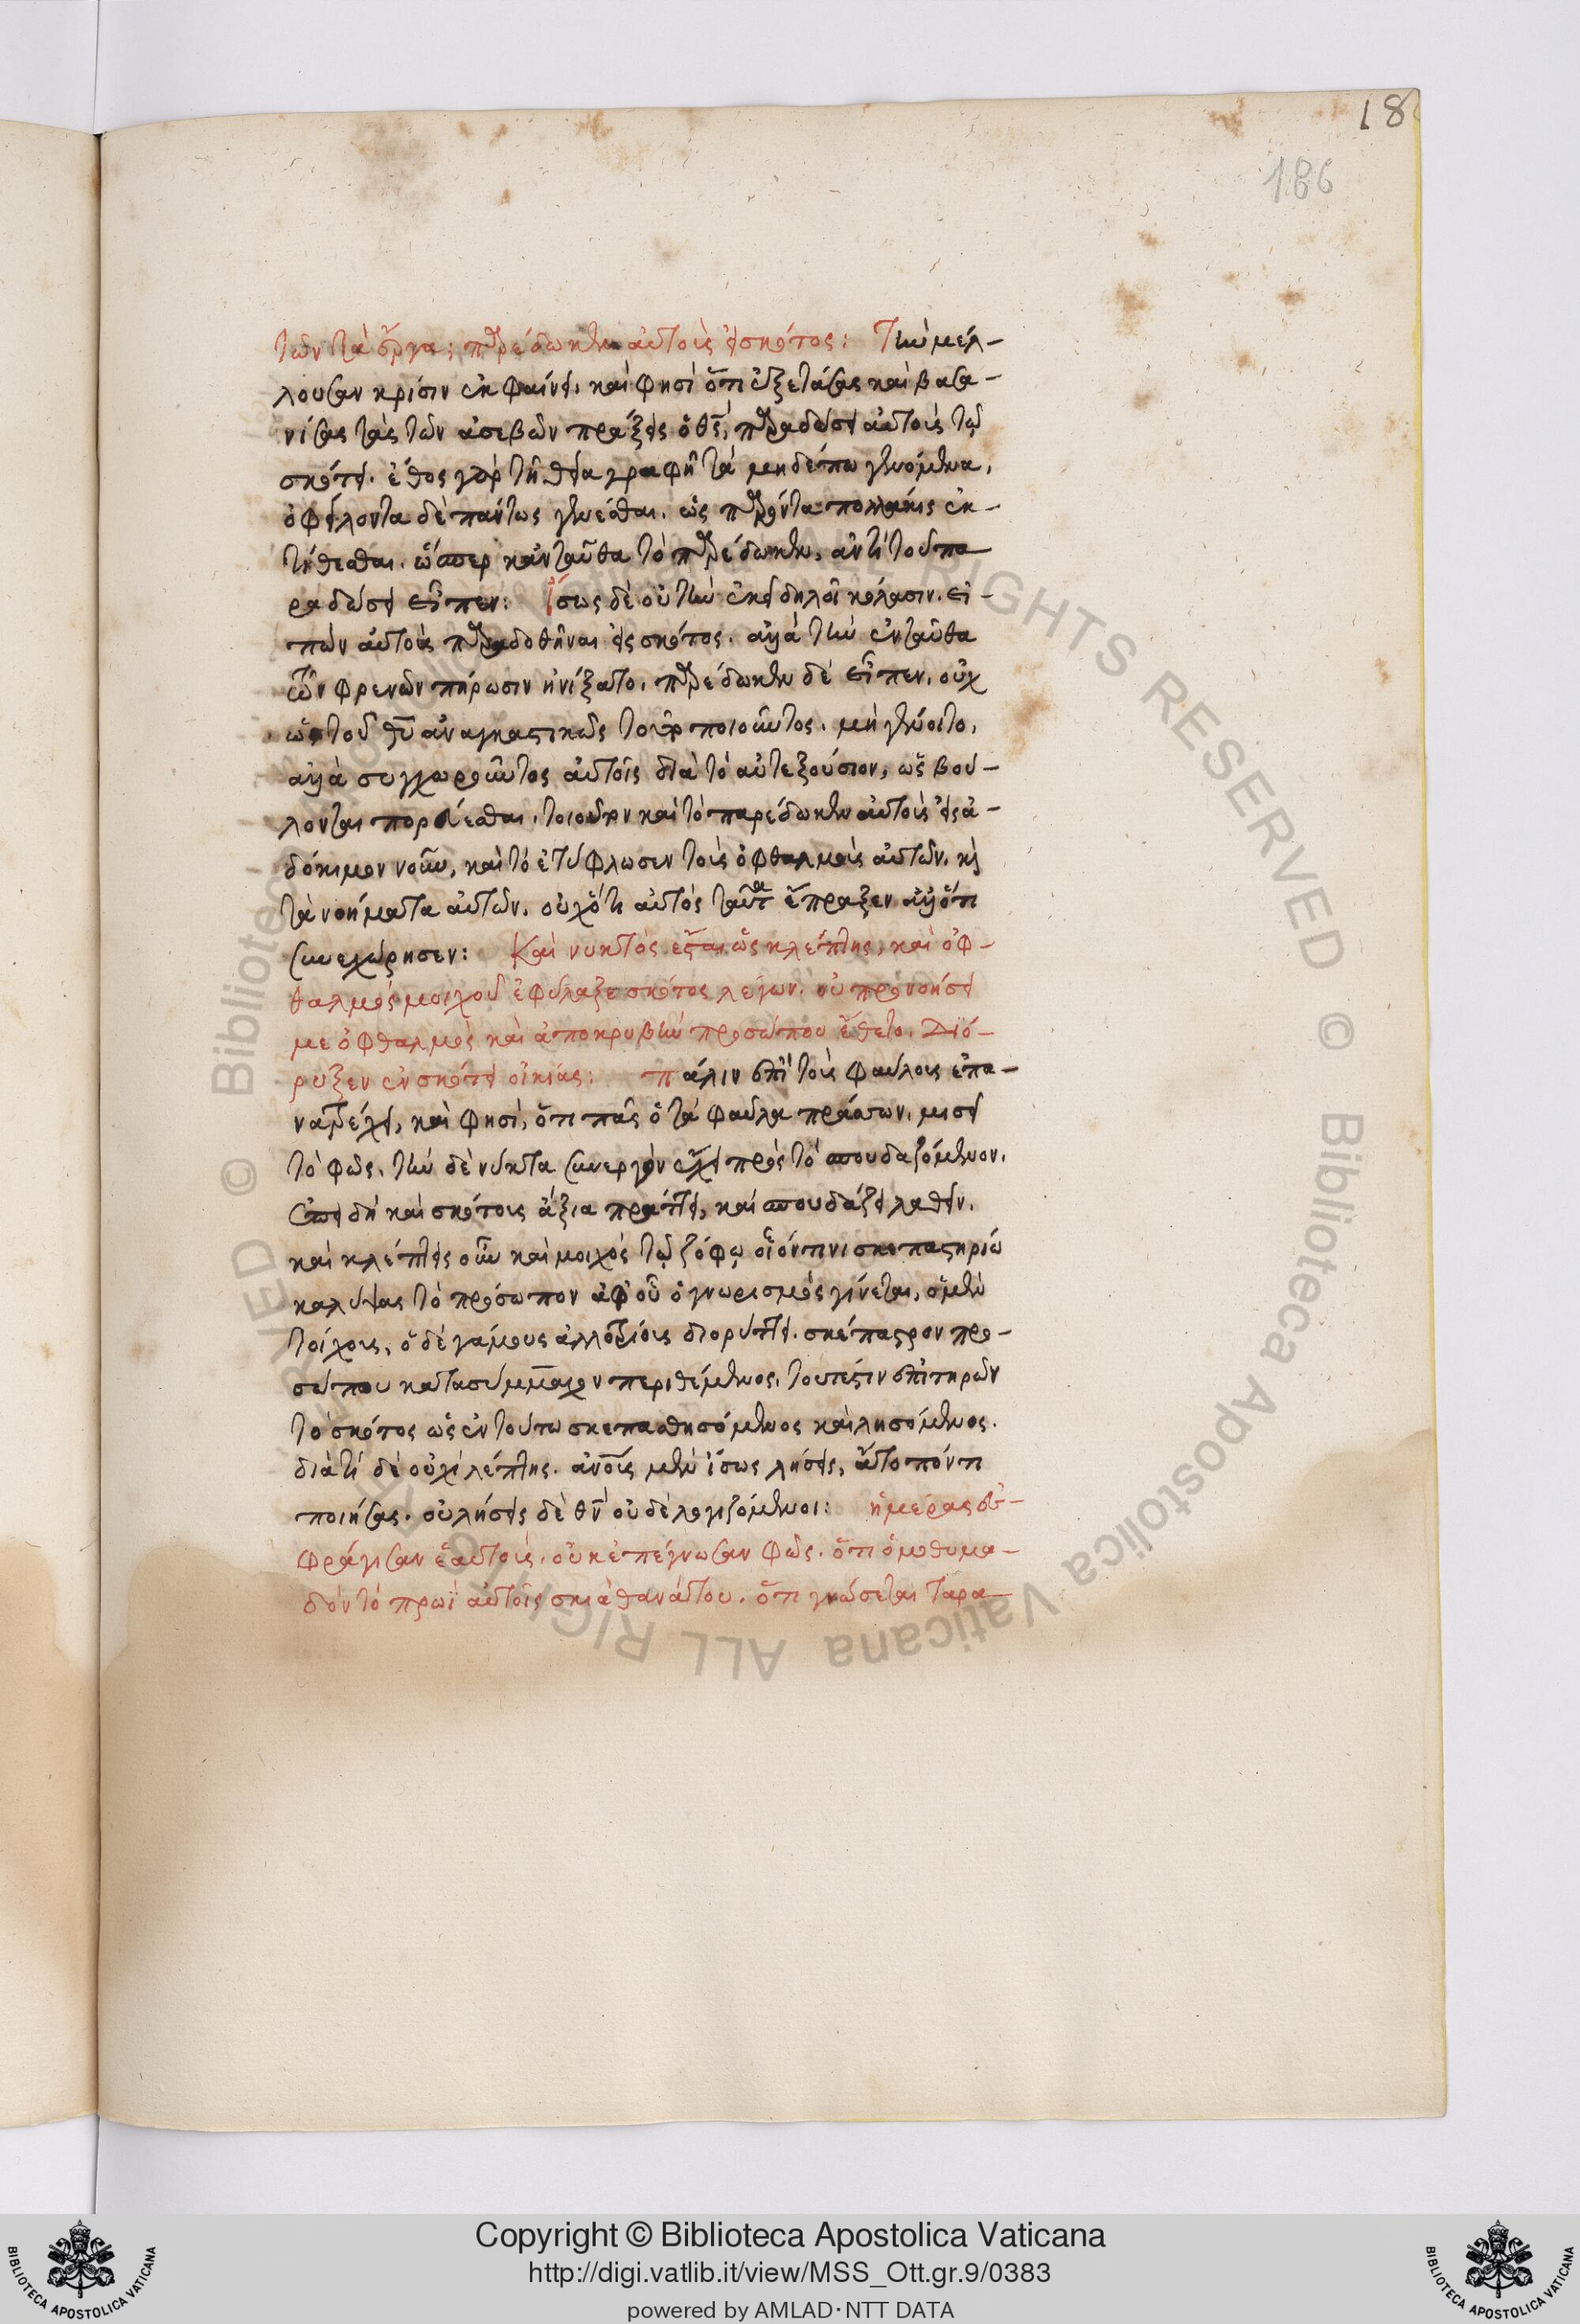 18
186
τῶν τὰ ἔργα; παρέδωκεν αὐτοὺς εἰς σκότος: Τὴν μέλ-
λουσαν κρίσιν ἐκφαίνει. καὶ φησὶ ὅτι ἐξετάσας καὶ βασα-
νίσας τὰς τῶν ἀσεβῶν πράξεις ὁ θς, παραδώσει αὐτοὺς τῷ
σκότει. ἔθος γὰρ τῇ θείᾳ γραφῇ τὰ μηδέπω γενόμενα,
ὀφείλοντα δὲ πάντως γενέσθαι. ὡς παρόντα πολλάκις ἐκ-
τίθεσθαι. ὥσπερ κἀνταῦθα τὸ παρέδωκεν, ἀντὶ τοῦ πα
ραδώσει εἶπεν: Ἴσως δὲ οὐ τὴν ἐκεῖ δηλοῖ κόλασιν. εἰ-
πὼν αὐτοὺς παραδοθῆναι εἰς σκότος. ἀλλὰ τὴν ἐνταῦθα
τῶν φρενῶν πήρωσιν ἠνίξατο. παρέδωκεν δὲ εἶπεν, οὐχ
ὡς τοῦ θυ ἀναγκαστικῶς τοῦτο ποιοῦντος. μὴ γένοιτο,
ἀλλὰ συγχωροῦντος αὐτοῖς διὰ τὸ αὐτεξούσιον, ὡς βού-
λονται πορεύεσθαι. τοιοῦτον καὶ τὸ παρέδωκεν αὐτοὺς εἰς ἀ-
δόκιμον νοῦν, καὶ τὸ ἐτύφλωσεν τοὺς ὀφθαλμοὺς αὐτῶν. κὶ
τὰ νοήματα αὐτῶν. οὐχ ὅτι αὐτὸς ταῦτα ἔπραξεν ἀλλ' ὅτι
συνεχώρησεν: Καὶ νυκτὸς ἔσται ὡς κλέπτης, καὶ ὀφ-
θαλμὸς μοιχοῦ ἐφύλαξε σκότος λέγων. οὐ προνοήσει
με ὀφθαλμὸς καὶ ἀποκρυβὴν προσώπου ἔθετο. Διό-
ρυξεν ἐν σκότει οἰκίας: πάλιν ἐπὶ τοὺς φαύλους ἐπα-
νατρέχει, καὶ φησὶ, ὅτι πᾶς ὁ τὰ φαῦλα πράσσων. μισεῖ
τὸ φῶς. τὴν δὲ νύκτα συνεργὸν ἔχει πρὸς τὸ σπουδαζόμενον.
ἐπεὶ δὴ καὶ σκότους ἄξια πράττει, καὶ σπουδάζει λαθεῖν.
καὶ κλέπτης οὖν καὶ μοιχὸς τῷ ζόφῳ οἱόν τινι σκεπαστηρίῳ
καλύψας τὸ πρόσωπον ἀφ' οὗ ὁ γνωρισμὸς γίνεται, ὁ μὲν
τοίχους, ὁ δὲ γάμους ἀλλοτρίους διορύττει. σκέπαστρον προ-
σώπου κατασόμματον περιθέμενος. τουτέστιν ἐπιτηρῶν
τὸ σκότος ὡς ἐν τούτω σκεπασθησόμενος καὶ λησόμενος.
διὰ τί δὲ οὐχὶ λέπτης. ἀνους μὲν ἴσως λήσεις, ἄτοπόν τι
ποιήσας. οὐ λήσεις δὲ θν οὐδὲ λογιζόμενοι: ἡμέρας ἐσ-
φράγισαν ἑαυτοὺς. οὐκ ἐπέγνωσαν φῶς. ὅτι ὁμοθυμα-
δὸν τὸ πρωῒ αὐτοῖς σκιὰ θανάτου. ὅτι γνώσεται ταρα
© Biblioteca Apostolica Vaticana ALL RIGHTS RESERVED © Biblioteca Apostolica Vaticana ALL RIGHTS RESERVED
Copyright © Biblioteca Apostolica Vaticana
http://digi.vatlib.it/view/MSS_Ott.gr.9/0383
powered by AMLAD·NTT DATA
BIBLIOTECA APOSTOLICA VATICANA
BIBLIOTECA APOSTOLICA VATICANA